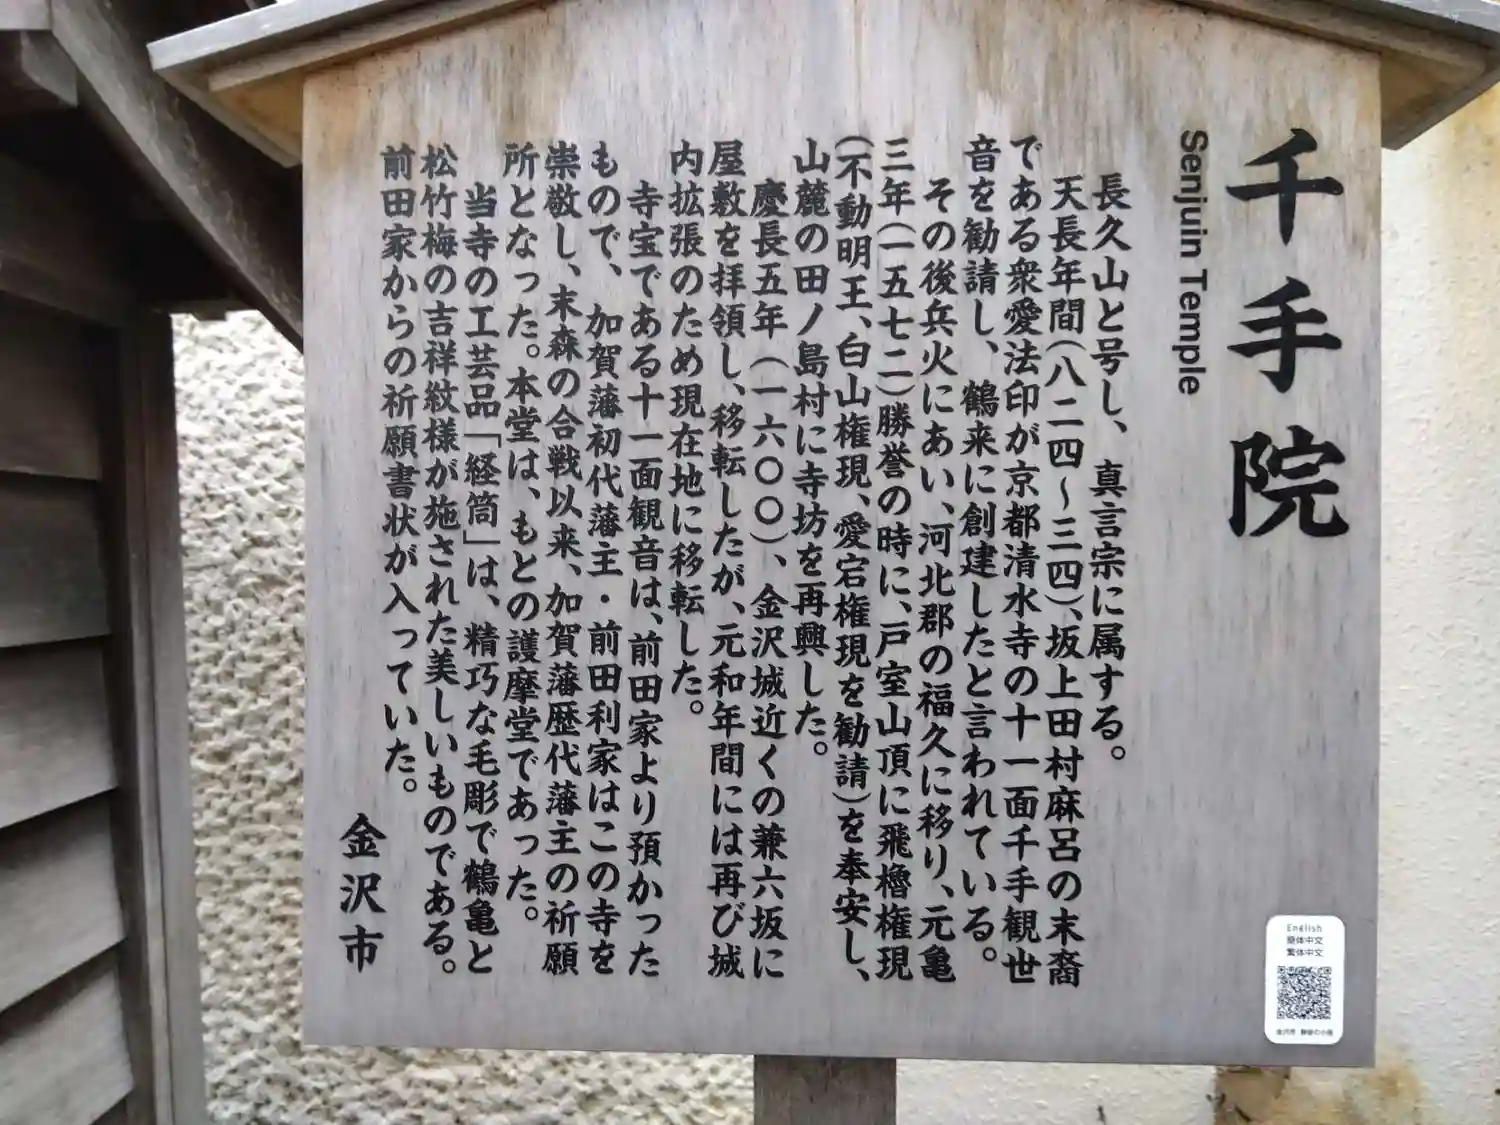 千手院
Senjuin Temple
長久山と号し、真言宗に属する。
天長年間(八二四〜三四)、坂上田村麻呂の末裔
である衆愛法印が京都清水寺の十一面千手観世
音を勧請し、鶴来に創建したと言われている。
その後兵火にあい、河北郡の福久に移り、元亀
三年(一五七二)勝誉の時に、戸室山頂に飛櫓権現
(不動明王、白山権現、愛宕権現を勧請)を奉安し、
山麓の田ノ島村に寺坊を再興した。
慶長五年(一六〇〇)、金沢城近くの兼六坂に
屋敷を拝領し、移転したが、元和年間には再び城
内拡張のため現在地に移転した。
寺宝である十一面観音は、前田家より預かった
もので、加賀藩初代藩主・前田利家はこの寺を
崇敬し、末森の合戦以来、加賀藩歴代藩主の祈願
所となった。本堂は、もとの護摩堂であった。
当寺の工芸品「経筒」は、精巧な毛彫で鶴亀と
松竹梅の吉祥紋様が施された美しいものである。
前田家からの祈願書状が入っていた。
金沢市
English
簡体中文
繁体中文